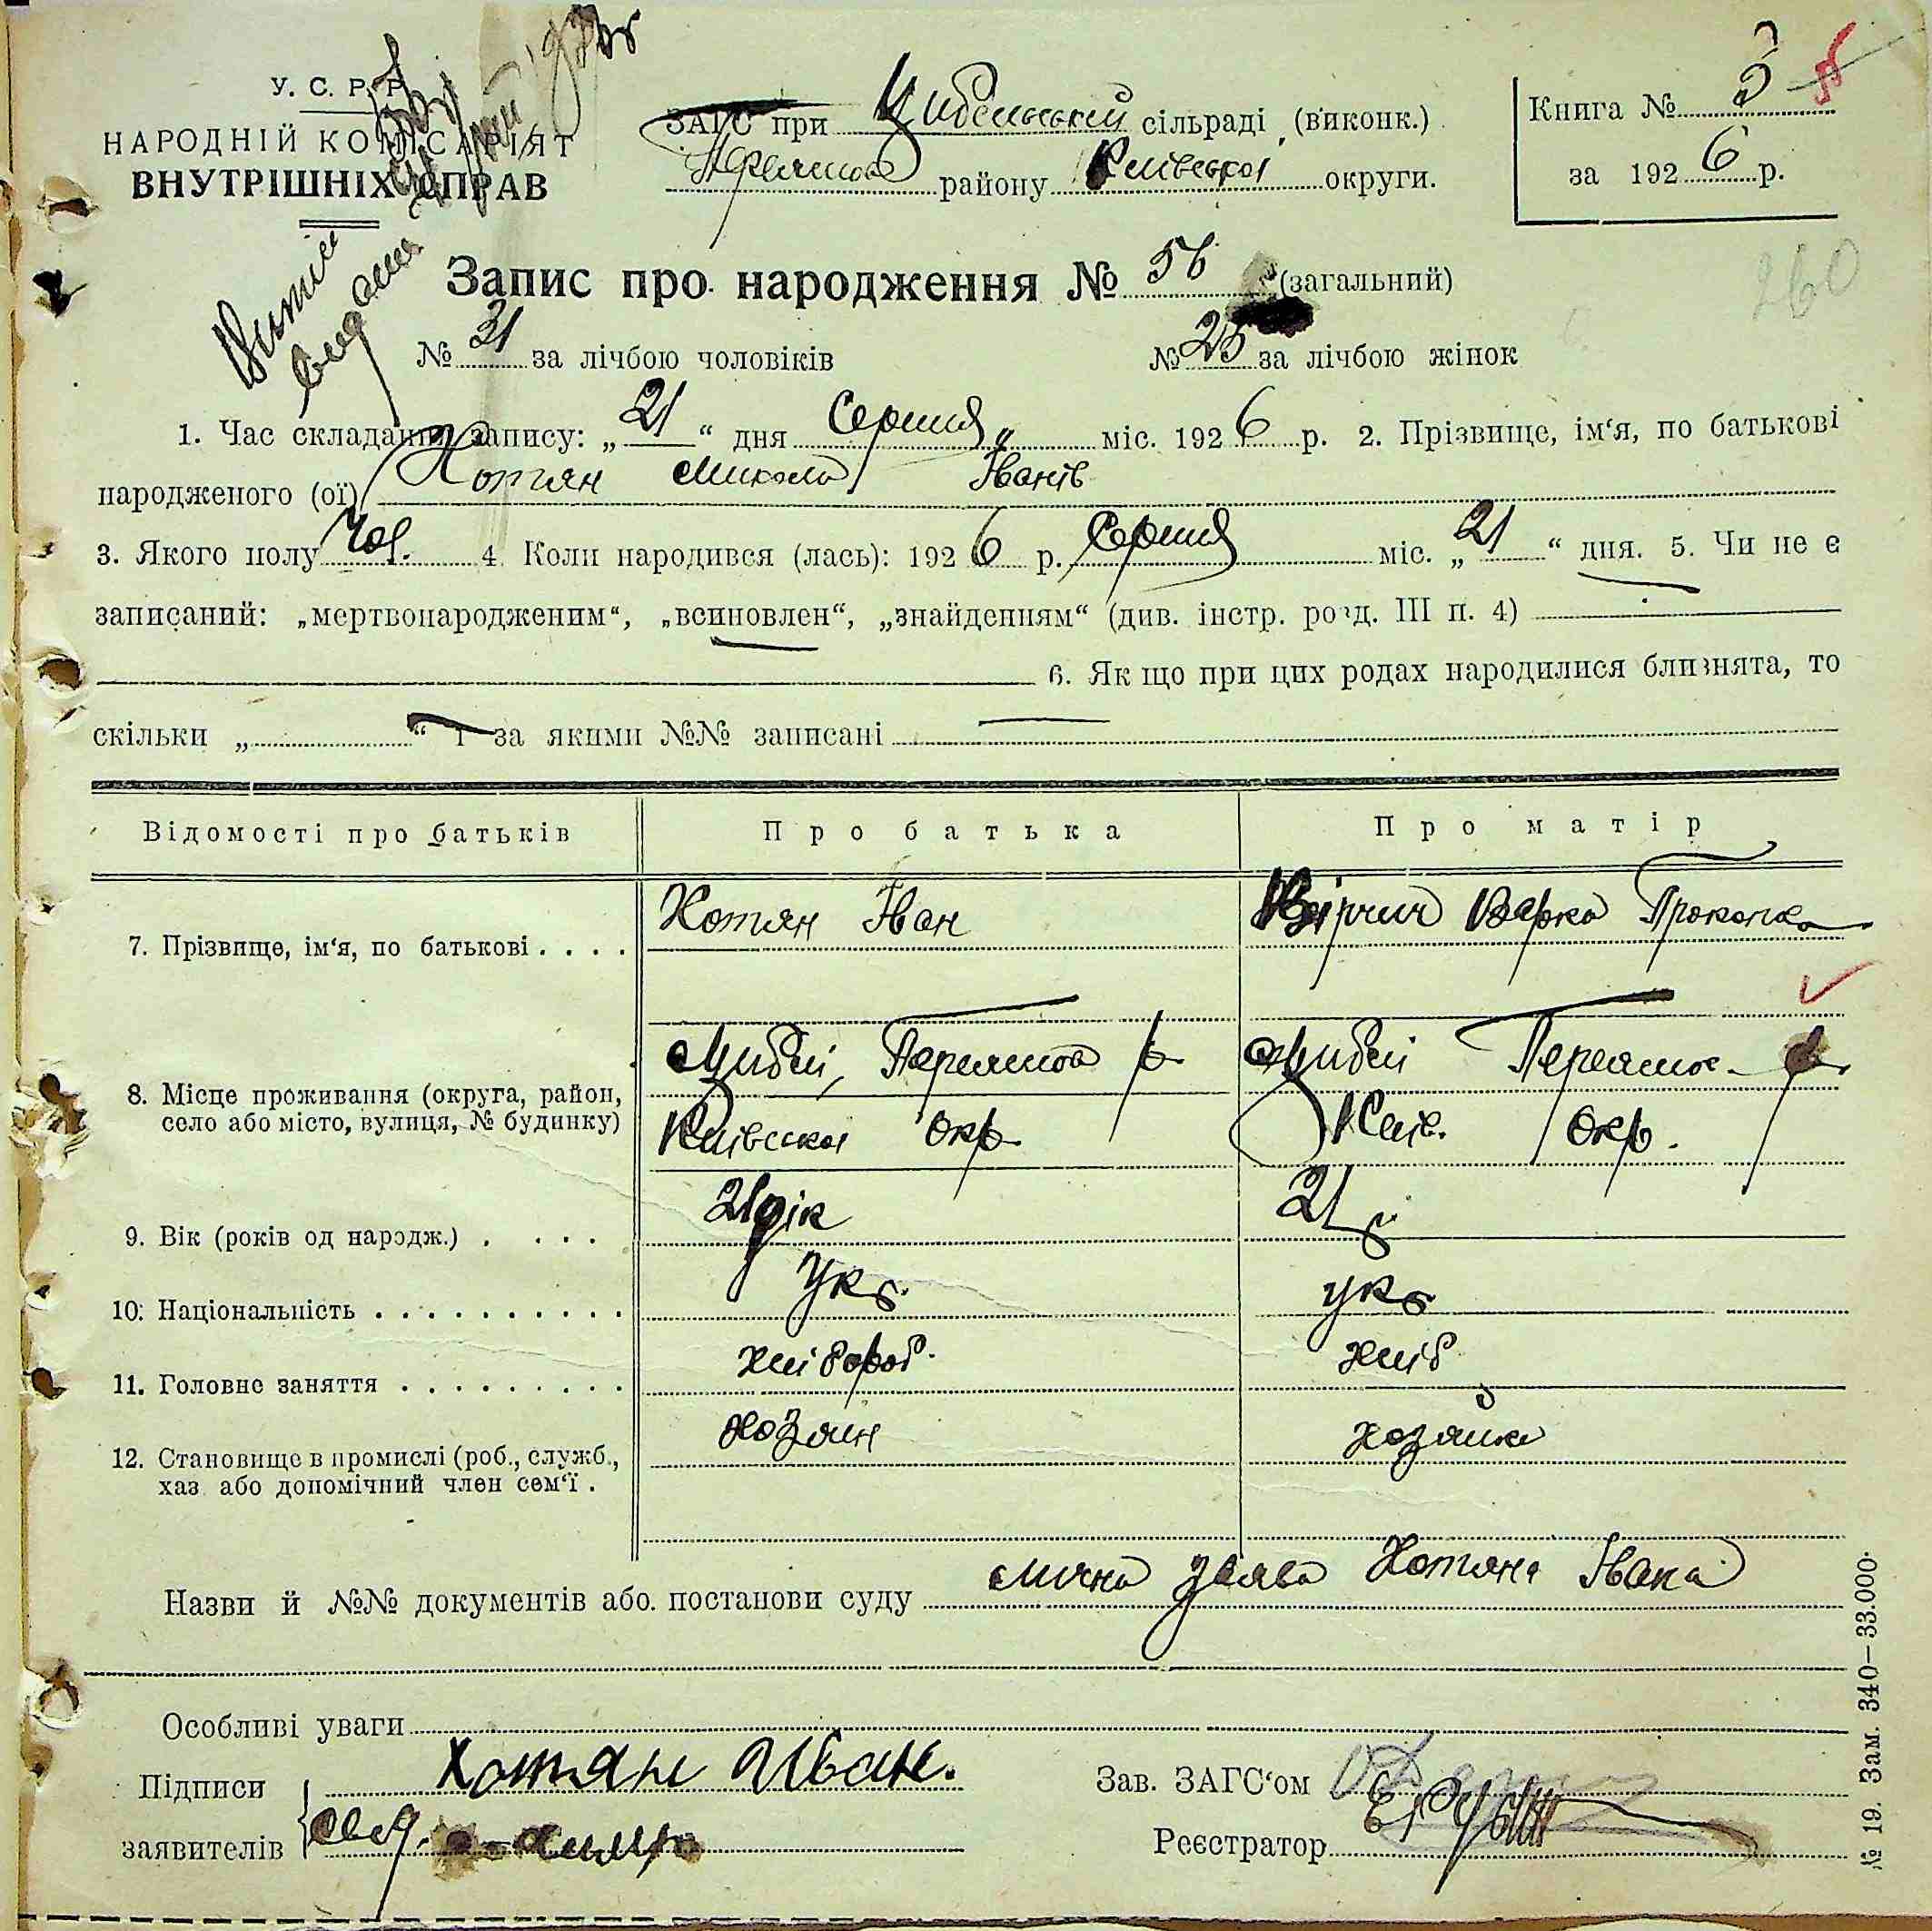 У. С. Р. Р.
НАРОДНІЙ КОМІСАРІЯТ
ВНУТРІШНІХ СПРАВ
ЗАГС при Цибельській сільраді (виконк.)
району Київської округи.
Книга № 3
за 1926 р.
260
Витяг
видано
Запис про народження № 56 (загальний)
№ 31 за лічбою чоловіків № 25 за лічбою жінок
1. Час складання запису: „21“ дня Серпня міс. 1926 р. 2. Прізвище, ім‘я, по батькові
народженого (ої) Хотян Микола Іванів
3. Якого полу Чол. 4. Коли народився (лась): 1926 р. Серпня міс. „21“ дня. 5. Чи не є
записаний: „мертвонародженим“, „всиновлен“, „знайденням“ (див. інстр. розд. III п. 4)
6. Як що при цих родах народилися близнята, то
скільки „ “ і за якими №№ записані
Відомості про батьків Про батька Про матір
7. Прізвище, ім‘я, по батькові . . . . Хотян Іван Варка Прокопов
8. Місце проживання (округа, район,
село або місто, вулиця, № будинку)
Цибелі, Переяслов р Цибелі Переяслов р
Київської Окр. Київ. Окр.
9. Вік (років од народж.) . . . . 21 рік 21 р.
10. Національність . . . . . . . . . . Укр. укр
11. Головне заняття . . . . . . . . . хлібороб. хліб
12. Становище в промислі (роб., служб.,
хаз або допомічний член сем‘ї . хозяин хозяйка
Назви й №№ документів або постанови суду Лична заява Хотяна Івана
Особливі уваги
Підписи Хотян Иван.
заявителів
Зав. ЗАГС‘ом
Реєстратор
№ 19. Зам. 340—33.000.